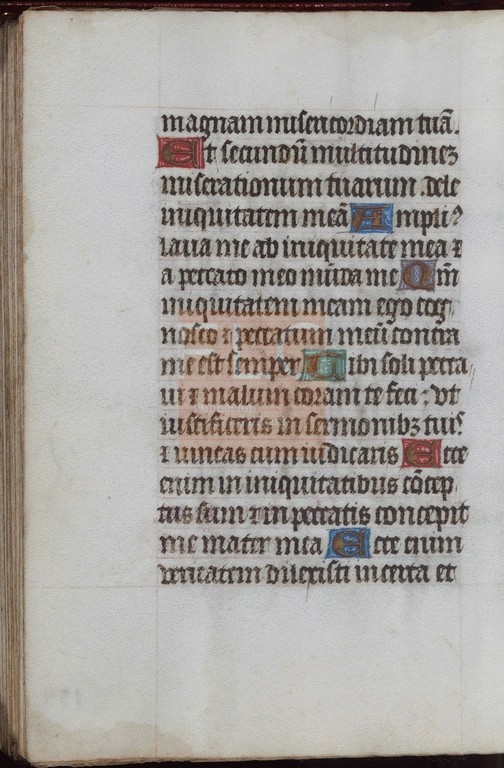 magnam misericordiam tuā.
Et secundū multitudinez
miserationum tuarum .dele
iniquitatem meā Ampli?
laua me ab iniquitate mea ⁊
a peccato meo mūda me Qm̄
iniquitatem meam ego cog,
nosco ⁊ peccatum meū contra
me est semper Tibi soli pecca,,
ui ⁊ malum coram te feci ; vt
iustificeris in sermonibꝫ tuis
⁊ uincas cum iudicaris Ecce
enim in iniquitatibus cōcep,
tus sum ⁊ in peccatis concepit
me mater mea Ecce enim
veritatem dilexisti incerta et